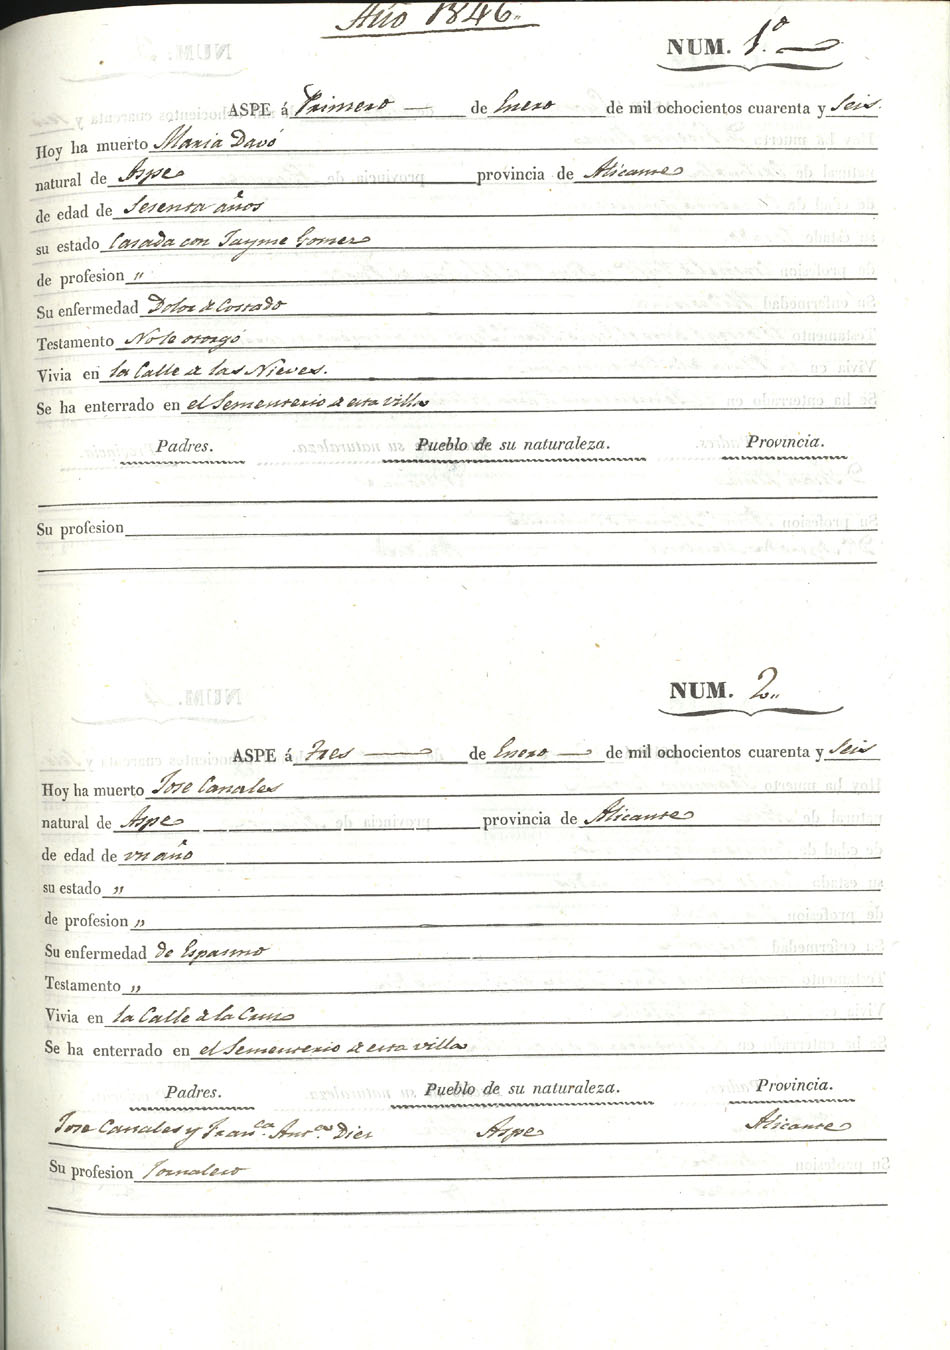 Año 1846.
NUM. 1º
ASPE á Primero de Enero de mil ochocientos cuarenta y Seis.
Hoy ha muerto Maria Davó
natural de Aspe provincia de Alicante
de edad de Sesenta años
su estado Casada con Jayme Gomez
de profesion „
Su enfermedad Dolor de Costado
Testamento No lo otorgó
Vivia en la Calle de las Nieves.
Se ha enterrado en el Sementerio de esta villa
Padres. Pueblo de su naturaleza. Provincia.
Su profesion
NUM. 2„
ASPE á Tres de Enero de mil ochocientos cuarenta y Seis
Hoy ha muerto Jose Canales
natural de Aspe provincia de Alicante
de edad de un año
su estado „
de profesion „
Su enfermedad de Espasmo
Testamento „
Vivia en la Calle de la Cruz
Se ha enterrado en el Sementerio de esta villa
Padres. Pueblo de su naturaleza. Provincia.
Jose Canales y Franca. Anta. Diez Aspe Alicante
Su profesion Jornalero